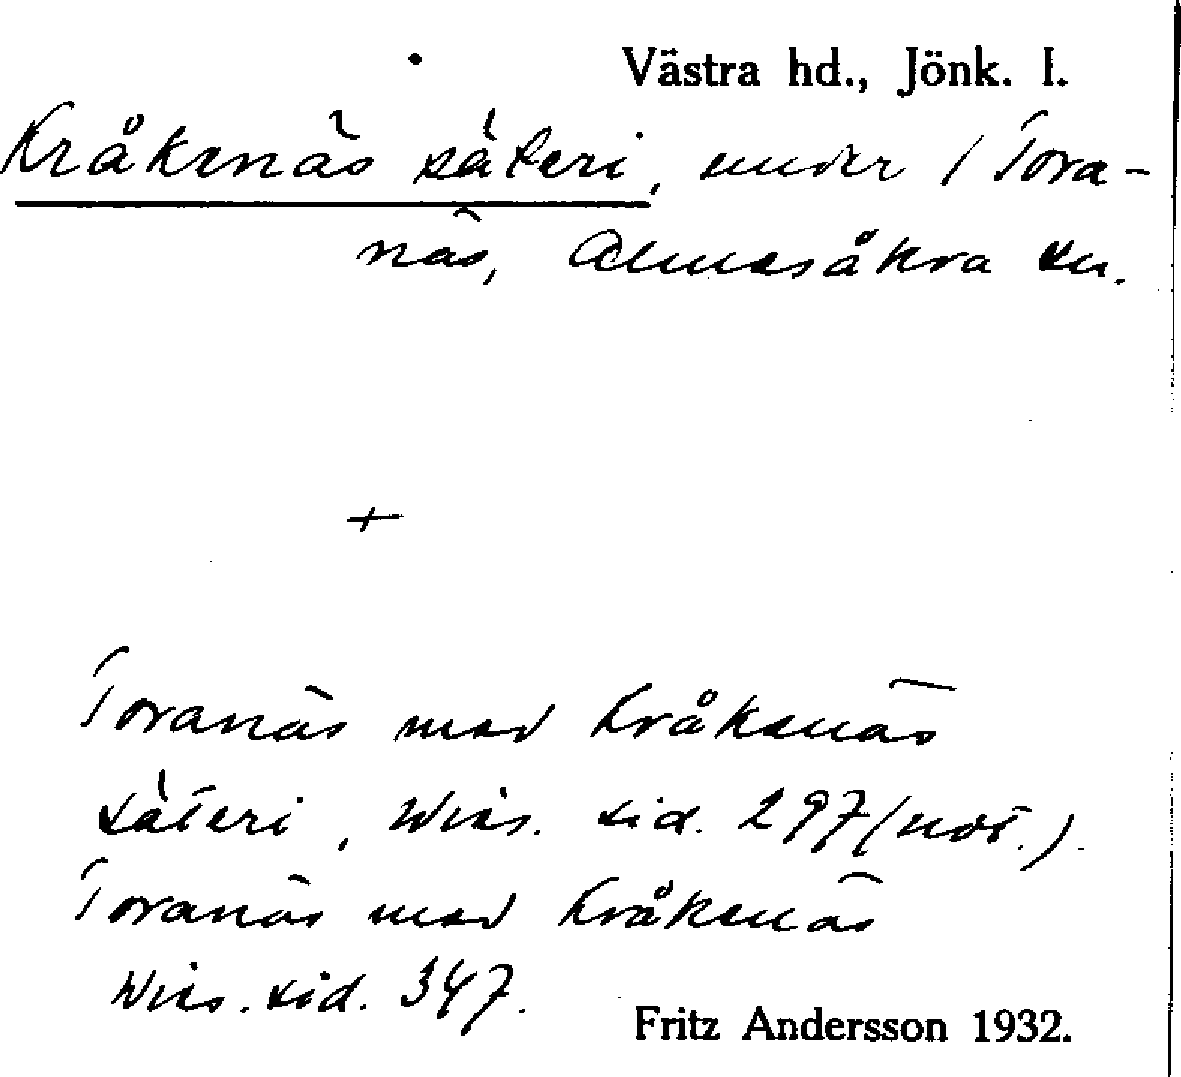 Västra hd., Jönk. l.
Kråkenäs säteri, under 1 Tora-
näs, Almesåkra sn.
+
Toranäs med Kråkenäs
säteri, Wies. sid. 297 (not.).
Toranäs med Kråkenäs
Wies. sid. 347.
Fritz Andersson 1932.